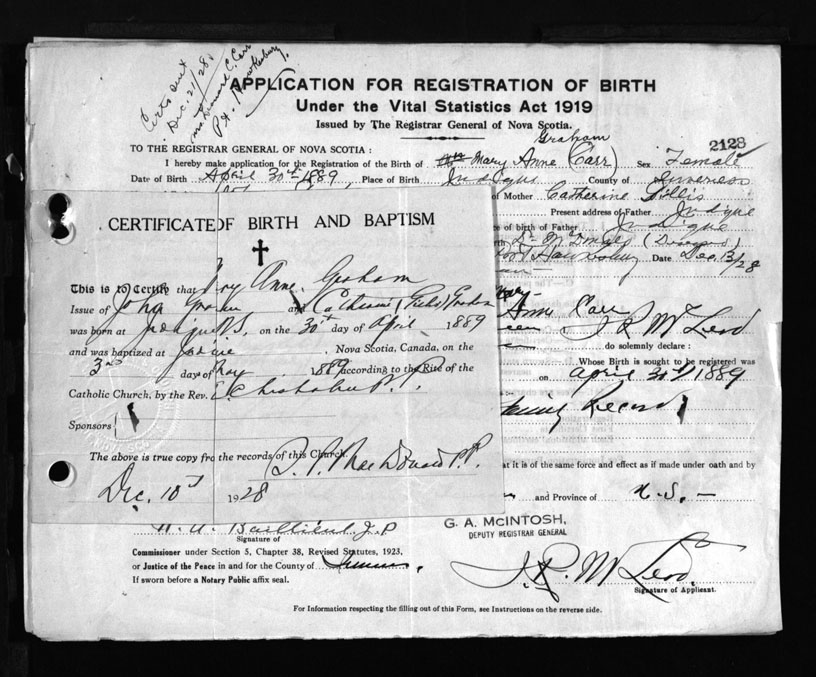 Certs sent
Dec. 21/28
Mrs C. Carr
Pt. Hawkesbury
APPLICATION FOR REGISTRATION OF BIRTH
Under the Vital Statistics Act 1919
Issued by The Registrar General of Nova Scotia.
2128
TO THE REGISTRAR GENERAL OF NOVA SCOTIA :
Graham
I hereby make application for the Registration of the Birth of Mary Anne (Carr) Sex Female
Date of Birth April 30th 1889, Place of Birth Judique County of Inverness
of Mother Catherine Gillis
Present address of Father Judique
of birth of Father Judique
Hawkesbury Date Dec. 13/28
CERTIFICATE OF BIRTH AND BAPTISM
This is to Certify that Mary Anne Graham
Issue of John Graham and Catherine Graham
was born at Judique N.S. on the 30th day of April 1889
and was baptized at Judique, Nova Scotia, Canada, on the
3rd day of May 1889 according to the Rite of the
Catholic Church, by the Rev. Chisholm P.P.
Sponsors
The above is true copy fro the records of this Church.
MacDonald P.P.
Dec. 10th 1928
Mary
Anne Carr
J. R. McLeod
do solemnly declare :
Whose Birth is sought to be registered was
on April 30th 1889
Family Record
at it is of the same force and effect as if made under oath and by
and Province of N.S. —
J.P
Signature of
Commissioner under Section 5, Chapter 38, Revised Statutes, 1923,
or Justice of the Peace in and for the County of
If sworn before a Notary Public affix seal.
G. A. McINTOSH,
DEPUTY REGISTRAR GENERAL
J. R. McLeod
Signature of Applicant.
For Information respecting the filling out of this Form, see Instructions on the reverse side.